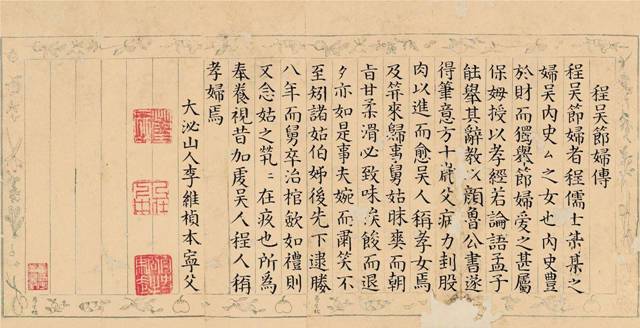 程吳節婦傳
程吳節婦者程儒士某某之
婦吳內史厶之女也內史豊
於財而獨舉節婦愛之甚屬
保姆授以孝經若論語孟子
能舉其辭教以顏魯公書遂
得筆意方十歲父疾力刲股
肉以進而愈吳人稱孝女焉
及笄來歸事舅姑昧爽而朝
旨甘柔滑必致味俟餕而退
夕亦如是事夫婉而肅笑不
至矧諸姑伯姊後先下逮勝
八年而舅卒治棺歛如禮則
又念姑之煢〻在疚也所為
奉養視昔加虔吳人程人稱
孝婦焉
大泌山人李維楨本寧父